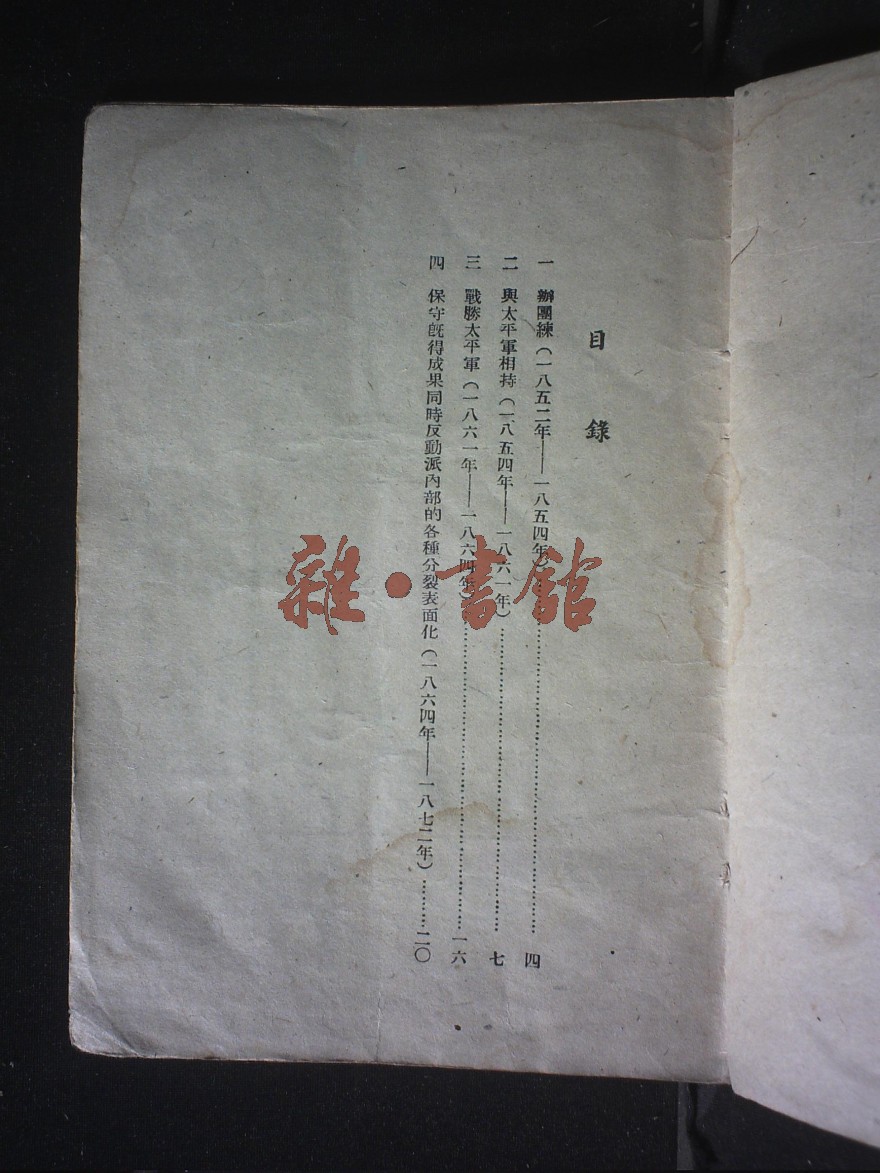 目錄
一 辦團練(一八五二年——一八五四年)……………………四
二 與太平軍相持(一八五四年——一八六一年)……………………七
三 戰勝太平軍(一八六一年——一八六四年)……………………一六
四 保守旣得成果同時反動派內部的各種分裂表面化(一八六四年——一八七二年)………二〇
雜·書館